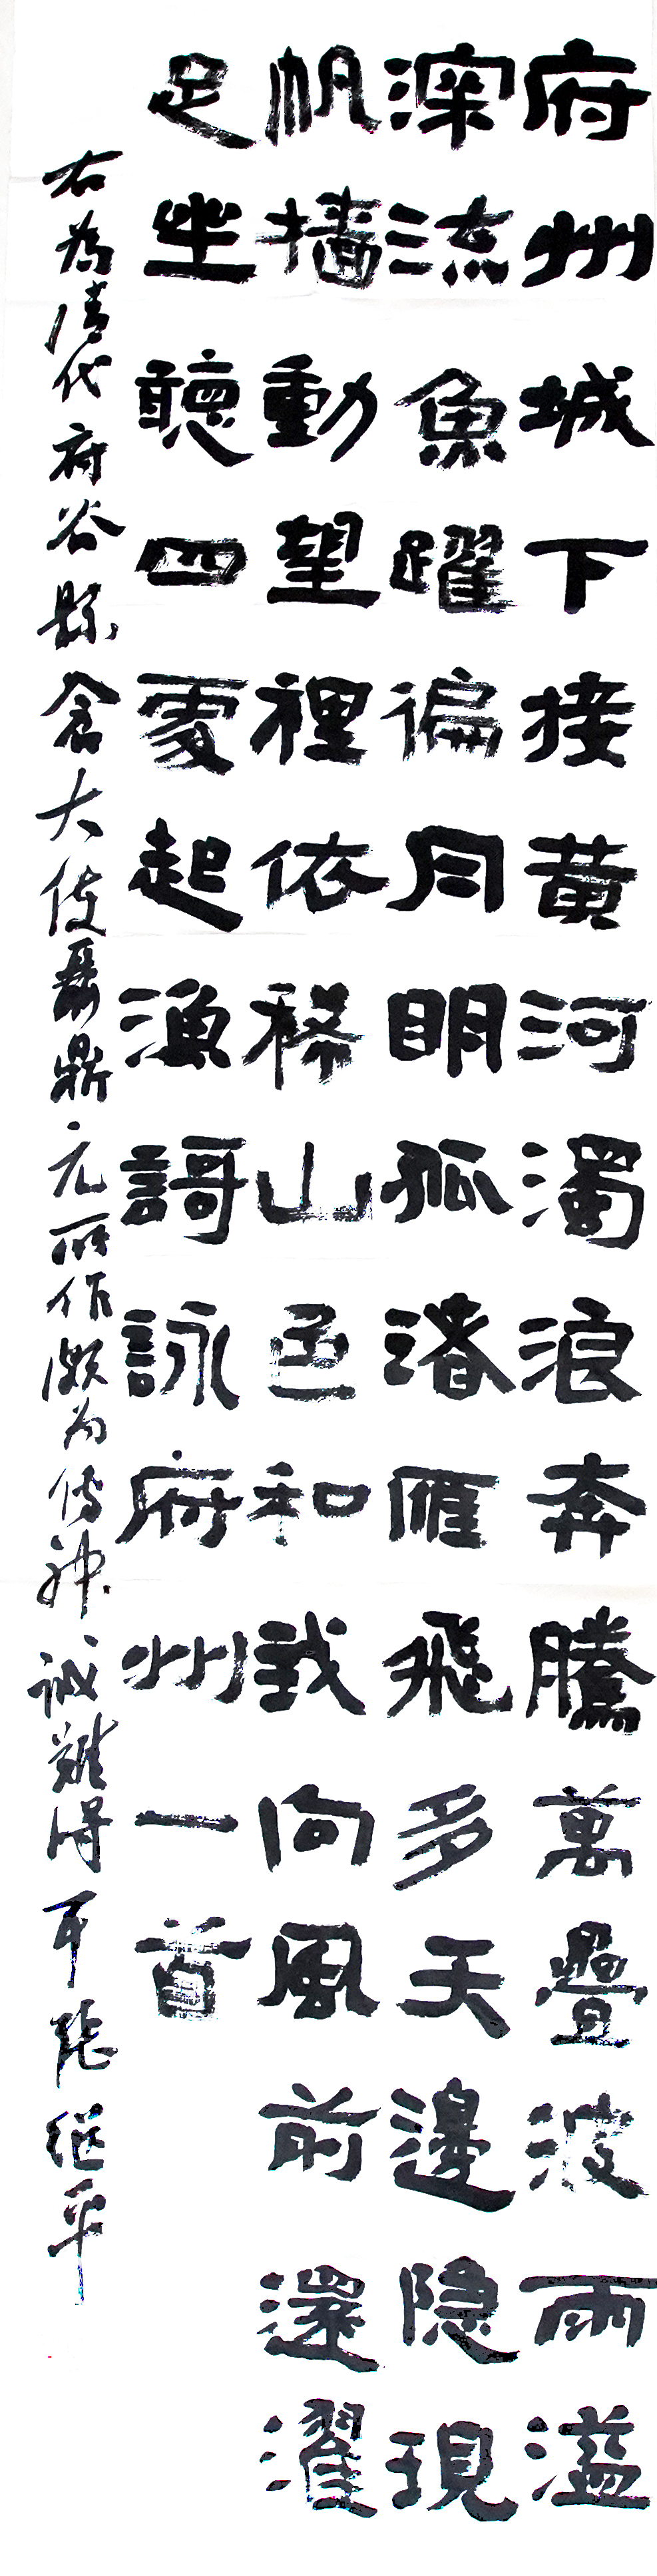 府州城下接黄河濁浪奔騰萬疊波雨溢
深流魚躍徧月明孤渚雁飛多天邊隐現
帆檣動望裡依稀山色和我向風前還濯
足坐聽四處起漁謌詠府州一首
右為清代府谷縣倉大使聶鼎元所作頗为传神誠難得继平